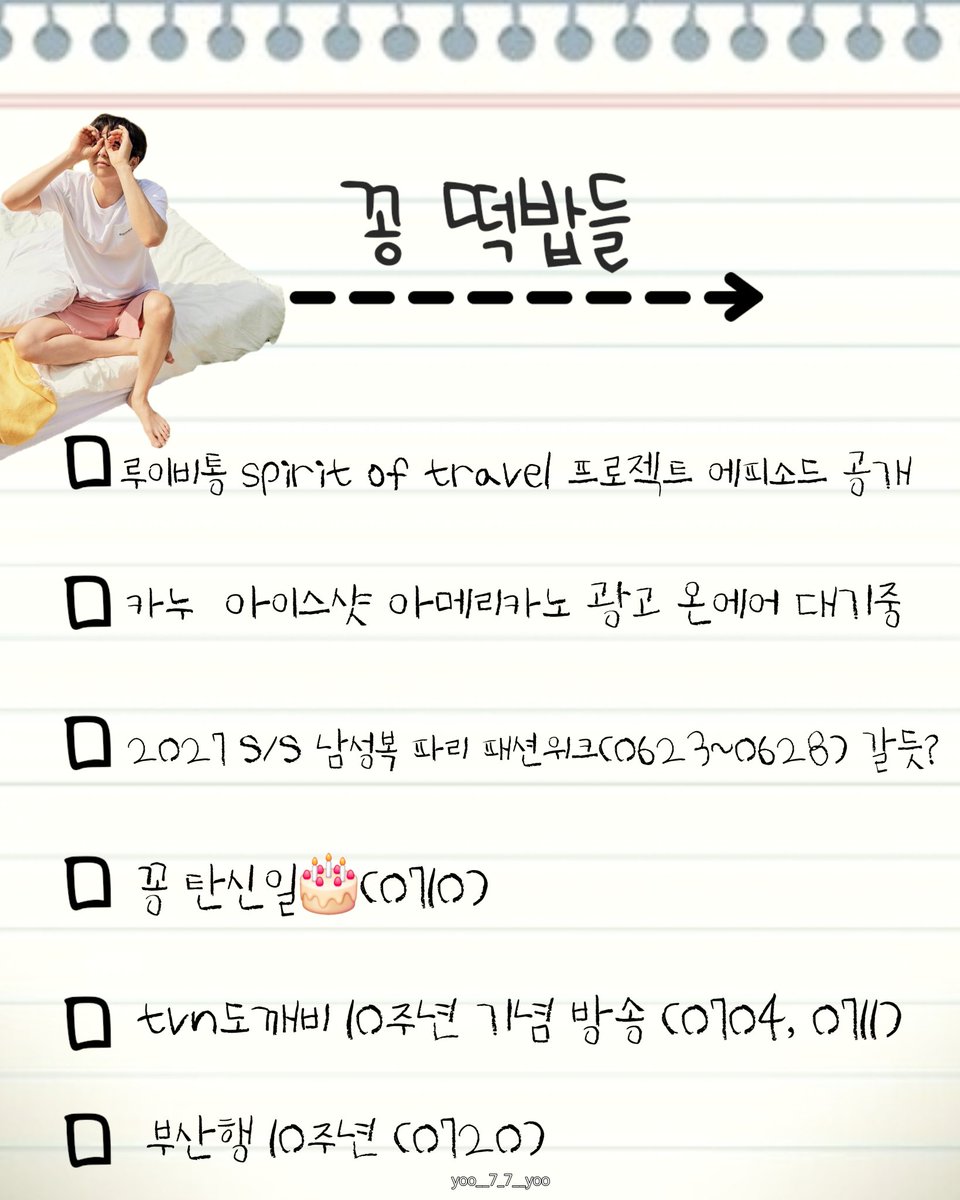 꽁 떡밥들
루이비통 spirit of travel 프로젝트 에피소드 공개
카누 아이스샷 아메리카노 광고 온에어 대기중
2027 S/S 남성복 파리 패션위크(0623~0628) 갈듯?
꽁 탄신일🎂(0710)
tvn도깨비 10주년 기념 방송 (0704, 0711)
부산행 10주년 (0720)
yoo__7_7__yoo